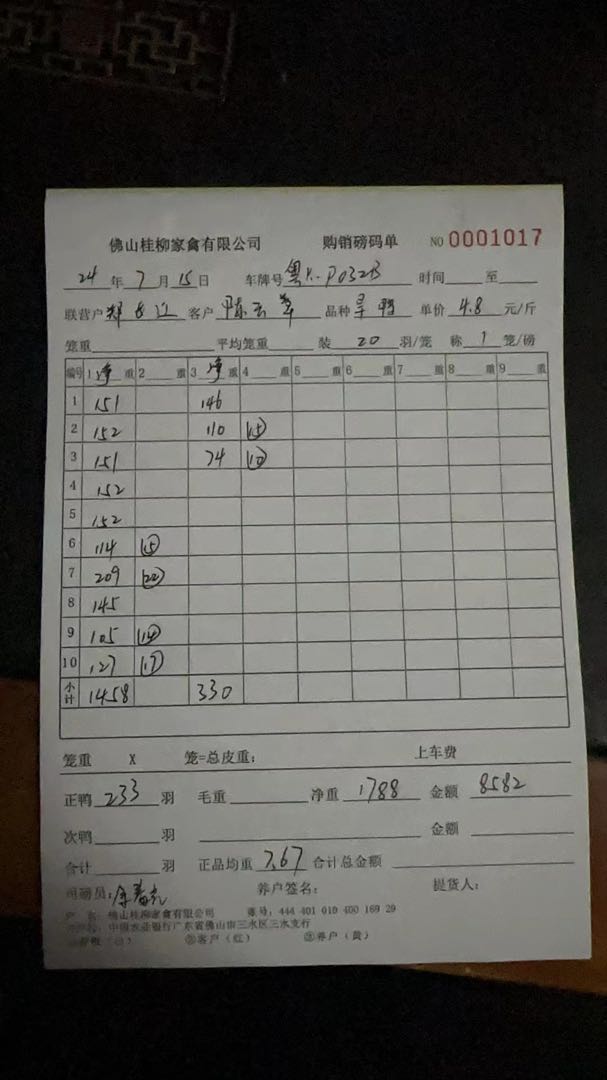 佛山桂柳家禽有限公司 购销磅码单 NO 0001017
24 年 7 月 15 日 车牌号 粤K·P032B 时间 至
联营户 客户 陈 品种 旱鸭 单价 4.8 元/斤
笼重 平均笼重 装 20 羽/笼 称 1 笼/磅
编号 1 净 重 2 重 3 净 重 4 重 5 重 6 重 7 重 8 重 9 重
1 151 146
2 152 110 15
3 151 74 10
4 152
5 152
6 114 15
7 209 22
8 145
9 105 14
10 127 17
小计 1458 330
笼重 X 笼=总皮重: 上车费
正鸭 233 羽 毛重 净重 1788 金额 8582
次鸭 羽 金额
合计 羽 正品均重 7.67 合计总金额
司磅员: 养户签名: 提货人:
户 名: 佛山桂柳家禽有限公司 账号: 444 401 010 400 169 29
中国农业银行广东省佛山市三水区三水支行
②客户(红) ③养户(黄)